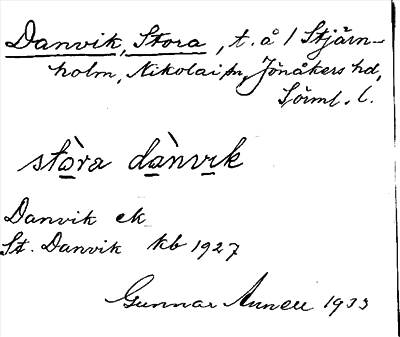 Danvik, Stora, t. å / Stjärn-
holm, Nikolai sn, Jönåkers hd,
Sörml. l.
stò̱ra dà̱nvi̱k
Danvik ek
St. Danvik kb 1927
Gunnar 1933